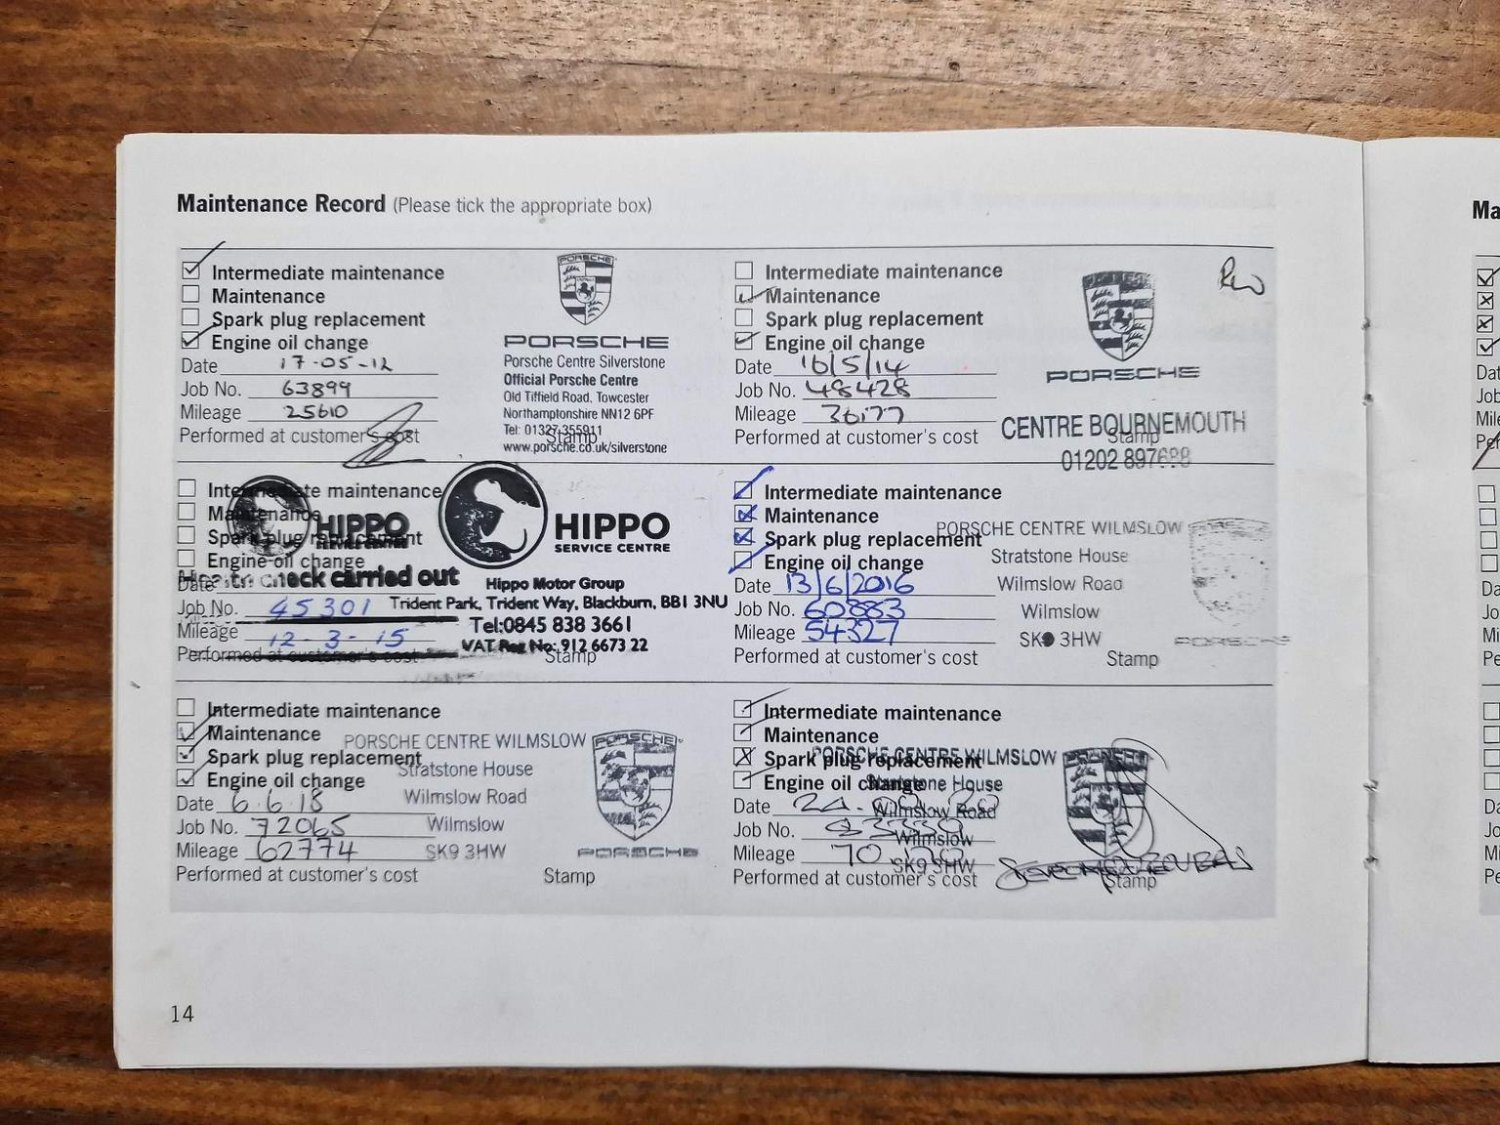 Maintenance Record (Please tick the appropriate box)
Intermediate maintenance
Maintenance
Spark plug replacement
Engine oil change
Date 17-05-12
Job No. 63899
Mileage 25610
Performed at customer's cost
Stamp
PORSCHE
PORSCHE
Porsche Centre Silverstone
Official Porsche Centre
Old Tiffield Road, Towcester
Northamptonshire NN12 6PF
Tel: 01327 355911
www.porsche.co.uk/silverstone
Intermediate maintenance
Maintenance
Spark plug replacement
Engine oil change
Date 16/5/14
Job No. 48428
Mileage 36177
Performed at customer's cost
Stamp
PORSCHE
CENTRE BOURNEMOUTH
01202 897688
Intermediate maintenance
Maintenance
Spark plug replacement
Engine oil change
Date
Job No. 45301
Mileage 12-3-15
Performed at customer's cost
Stamp
HIPPO
SERVICE CENTRE
check carried out
HIPPO
SERVICE CENTRE
Hippo Motor Group
Trident Park, Trident Way, Blackburn, BB1 3NU
Tel:0845 838 3661
VAT Reg No: 912 6673 22
Intermediate maintenance
Maintenance
Spark plug replacement
Engine oil change
Date 13/6/2016
Job No. 60883
Mileage 54327
Performed at customer's cost
Stamp
PORSCHE CENTRE WILMSLOW
Stratstone House
Wilmslow Road
Wilmslow
SK9 3HW
PORSCHE
Intermediate maintenance
Maintenance
Spark plug replacement
Engine oil change
Date 6.6.18
Job No. 72065
Mileage 62774
Performed at customer's cost
Stamp
PORSCHE CENTRE WILMSLOW
Stratstone House
Wilmslow Road
Wilmslow
SK9 3HW
PORSCHE
PORSCHE
Intermediate maintenance
Maintenance
Spark plug replacement
Engine oil change
Date
Job No.
Mileage
Performed at customer's cost
Stamp
PORSCHE CENTRE WILMSLOW
Stratstone House
Wilmslow Road
Wilmslow
SK9 3HW
14
Ma
Job